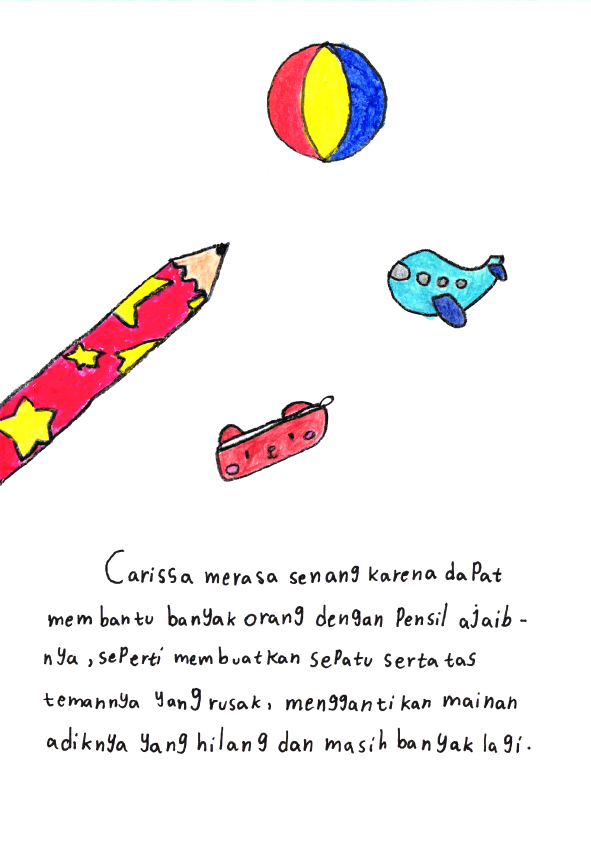 Carissa merasa senang karena dapat
membantu banyak orang dengan Pensil ajaib -
nya , seperti membuatkan sepatu serta tas
temannya yang rusak, menggantikan mainan
adiknya yang hilang dan masih banyak lagi.